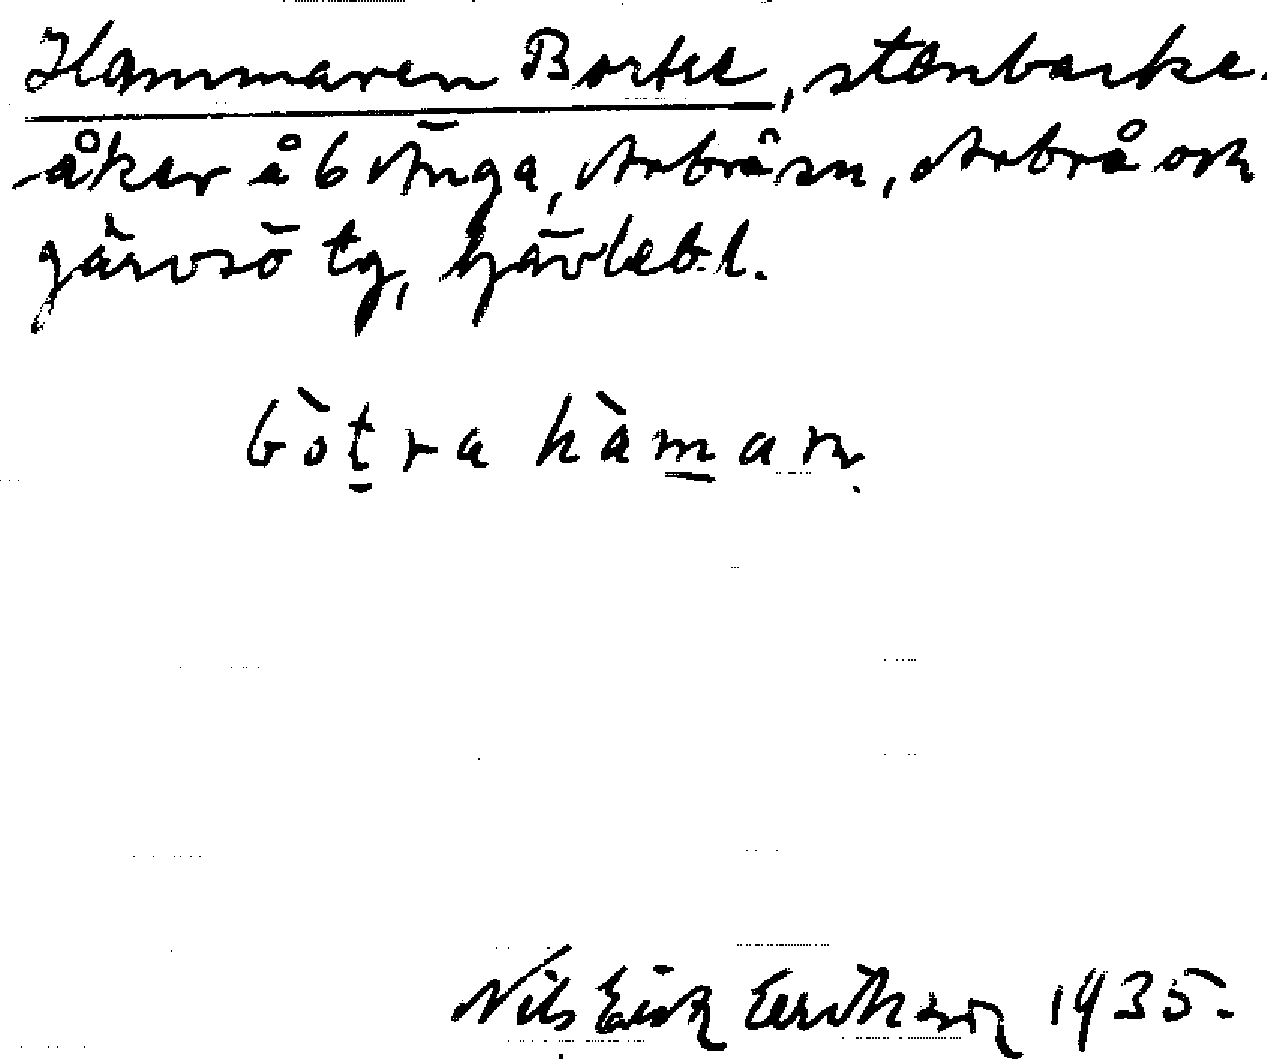 Hammaren Bortre, stenbacke,
åker å 6 Änga, Arbrå sn, Arbrå och
Järvsö tg, Gävleb. l.
bòtra hàman.
Nils Erik Eriksson 1935.